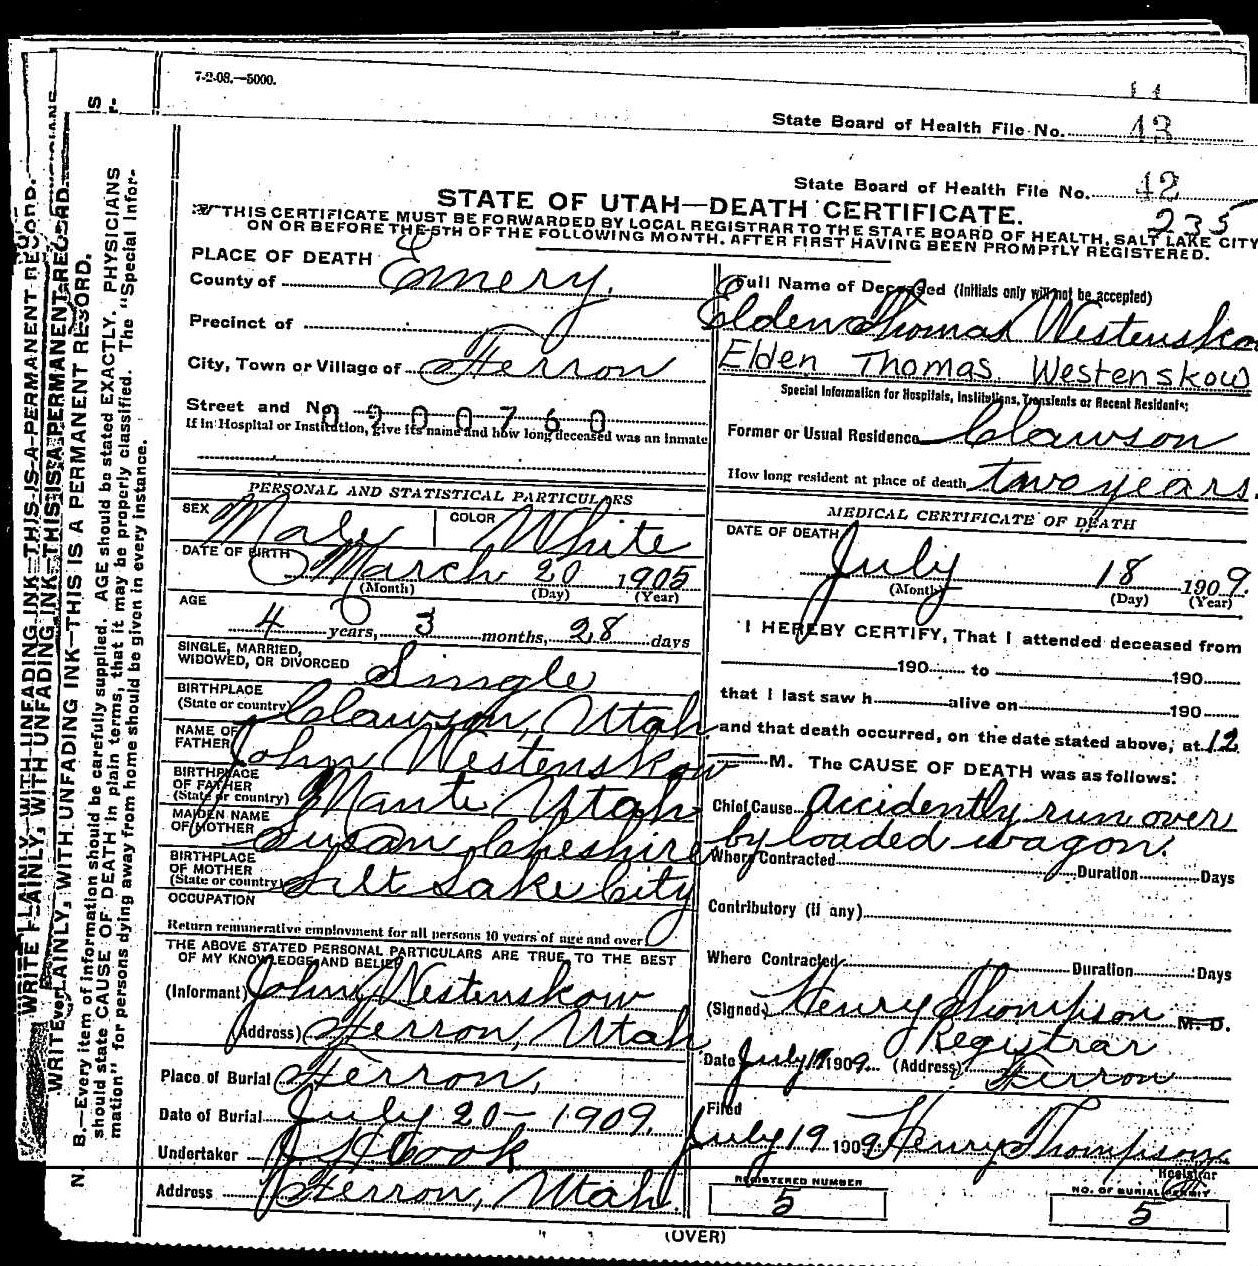 7-2-08.—5000.
State Board of Health File No. 43
State Board of Health File No. 42
235
STATE OF UTAH—DEATH CERTIFICATE.
THIS CERTIFICATE MUST BE FORWARDED BY LOCAL REGISTRAR TO THE STATE BOARD OF HEALTH, SALT LAKE CITY
ON OR BEFORE THE 5TH OF THE FOLLOWING MONTH, AFTER FIRST HAVING BEEN PROMPTLY REGISTERED.
PLACE OF DEATH
County of Emery.
Precinct of
City, Town or Village of Ferron
Street and No.
0900760
If in Hospital or Institution, give its name and how long deceased was an inmate
PERSONAL AND STATISTICAL PARTICULARS
SEX Male COLOR White
DATE OF BIRTH March 20 1905
(Month) (Day) (Year)
AGE
4 years, 3 months, 28 days
SINGLE, MARRIED,
WIDOWED, OR DIVORCED Single
BIRTHPLACE
(State or country) Clawson, Utah
NAME OF
FATHER John Westenskow
BIRTHPLACE
OF FATHER
(State or country) Mante Utah
MAIDEN NAME
OF MOTHER Susan Cheshire
BIRTHPLACE
OF MOTHER
(State or country) Salt Lake City
OCCUPATION
Return remunerative employment for all persons 10 years of age and over
THE ABOVE STATED PERSONAL PARTICULARS ARE TRUE TO THE BEST
OF MY KNOWLEDGE AND BELIEF
(Informant) John Westenskow
(Address) Ferron, Utah
Place of Burial Ferron,
Date of Burial July 20 – 1909.
Undertaker Cook
Address Ferron, Utah.
Full Name of Deceased (Initials only will not be accepted)
Elden Thomas Westenskow
Elden Thomas Westenskow
Special Information for Hospitals, Institutions, Transients or Recent Residents:
Former or Usual Residence Clawson
How long resident at place of death two years.
MEDICAL CERTIFICATE OF DEATH
DATE OF DEATH
July 18 1909.
(Month) (Day) (Year)
I HEREBY CERTIFY, That I attended deceased from
190 to 190
that I last saw h alive on 190
and that death occurred, on the date stated above, at 12
M. The CAUSE OF DEATH was as follows:
Chief Cause Accidently run over
by loaded wagon.
Where Contracted Duration Days
Contributory (if any)
Where Contracted Duration Days
(Signed) Henry Thompson M. D.
Registrar
Date July 19 1909. (Address) Ferron
Filed
July 19 1909 Henry Thompson
Registrar
REGISTERED NUMBER
5
NO. OF BURIAL PERMIT
5
(OVER)
WRITE PLAINLY, WITH UNFADING INK—THIS IS A PERMANENT RECORD.
N. B.—Every item of information should be carefully supplied. AGE should be stated EXACTLY. PHYSICIANS
should state CAUSE OF DEATH in plain terms, that it may be properly classified. The "Special Infor-
mation" for persons dying away from home should be given in every instance.